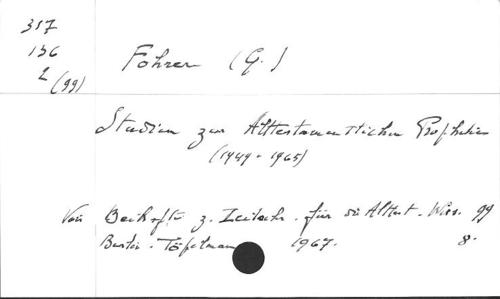 317
136
2 (99)
Fohrer (G.)
Studien zur Alttestamentlichen Prophetie
(1949-1965)
Voir Beihefte z. Zeitschr. für die Alttest. Wiss. 99
Berlin. Töpelmann 1967. 8.